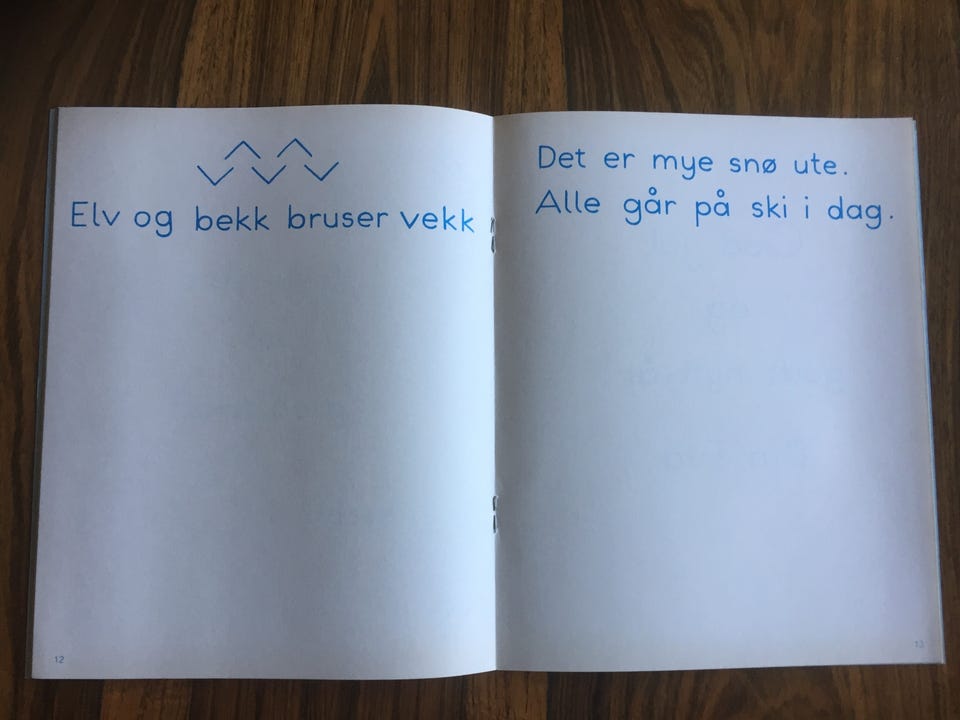 Elv og bekk bruser vekk
12
Det er mye snø ute.
Alle går på ski i dag.
13